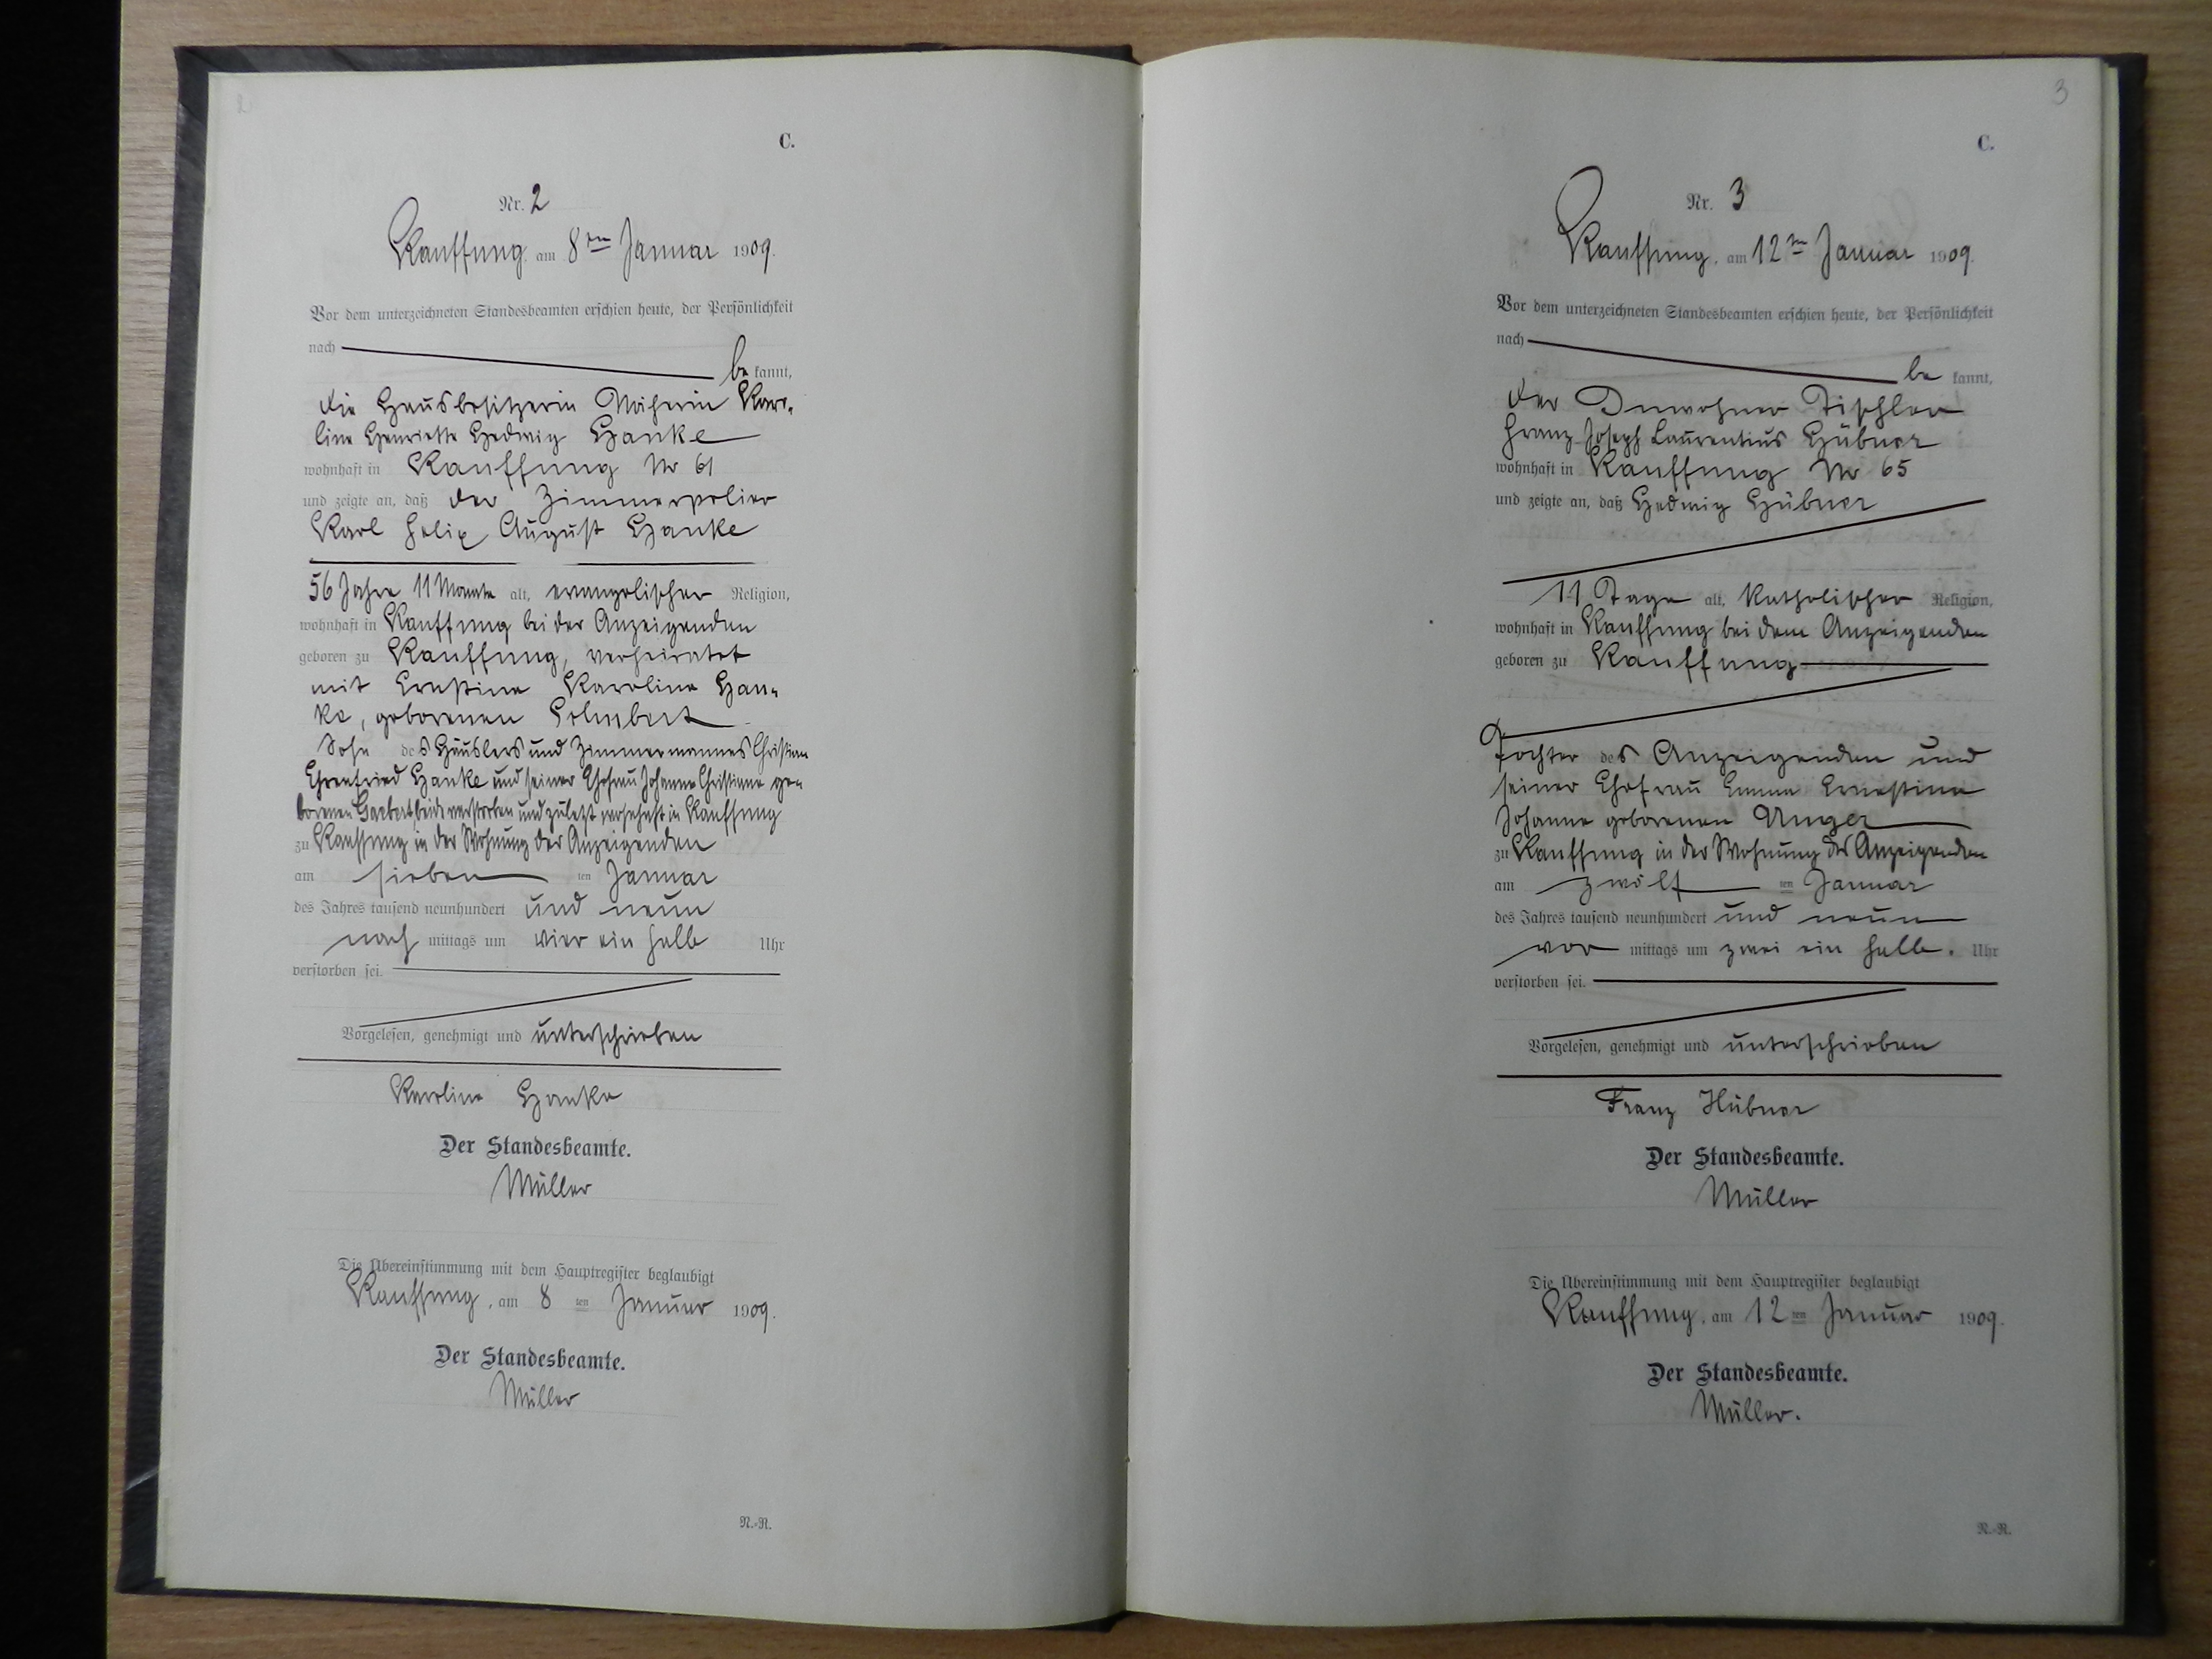 C.
Nr. 2
Kauffung, am 8ten Januar 1909.
Vor dem unterzeichneten Standesbeamten erschien heute, der Persönlichkeit
nach
be kannt,
die Hausbesitzerin Näherin Karo-
line Henriette Hedwig Hanke
wohnhaft in Kauffung No 61
und zeigte an, daß der Zimmerpolier
Karl Felix August Hanke
56 Jahre 11 Monate alt, evangelischer Religion,
wohnhaft in Kauffung bei der Anzeigenden
geboren zu Kauffung, verheiratet
mit Ernstine Karoline Han-
ke, geborenen
Sohn des Häuslers und Zimmermannes Christian
Ehrenfried Hanke und seiner Ehefrau Johanne Christiane ge-
borenen beide verstorben und zuletzt wohnhaft in Kauffung
zu Kauffung in der Wohnung der Anzeigenden
am sieben ten Januar
des Jahres tausend neunhundert und neun
nach mittags um vier ein halb Uhr
verstorben sei.
Vorgelesen, genehmigt und unterschrieben
Karoline Hanke
Der Standesbeamte.
Müller
Die Übereinstimmung mit dem Hauptregister beglaubigt
Kauffung, am 8 ten Januar 1909.
Der Standesbeamte.
Müller
N.-R.
3
C.
Nr. 3
Kauffung, am 12ten Januar 1909.
Vor dem unterzeichneten Standesbeamten erschien heute, der Persönlichkeit
nach
be kannt,
der Inwohner Tischler
Franz Joseph Laurentius Hübner
wohnhaft in Kauffung No 65
und zeigte an, daß Hedwig Hübner
11 Tage alt, katholischer Religion,
wohnhaft in Kauffung bei dem Anzeigenden
geboren zu Kauffung
Tochter des Anzeigenden und
seiner Ehefrau Emma Ernestine
Johanne geborenen Unger
zu Kauffung in der Wohnung des Anzeigenden
am zwölf ten Januar
des Jahres tausend neunhundert und neun
vor mittags um zwei ein halb. Uhr
verstorben sei.
Vorgelesen, genehmigt und unterschrieben
Franz Hübner
Der Standesbeamte.
Müller
Die Übereinstimmung mit dem Hauptregister beglaubigt
Kauffung, am 12 ten Januar 1909.
Der Standesbeamte.
Müller.
N.-R.